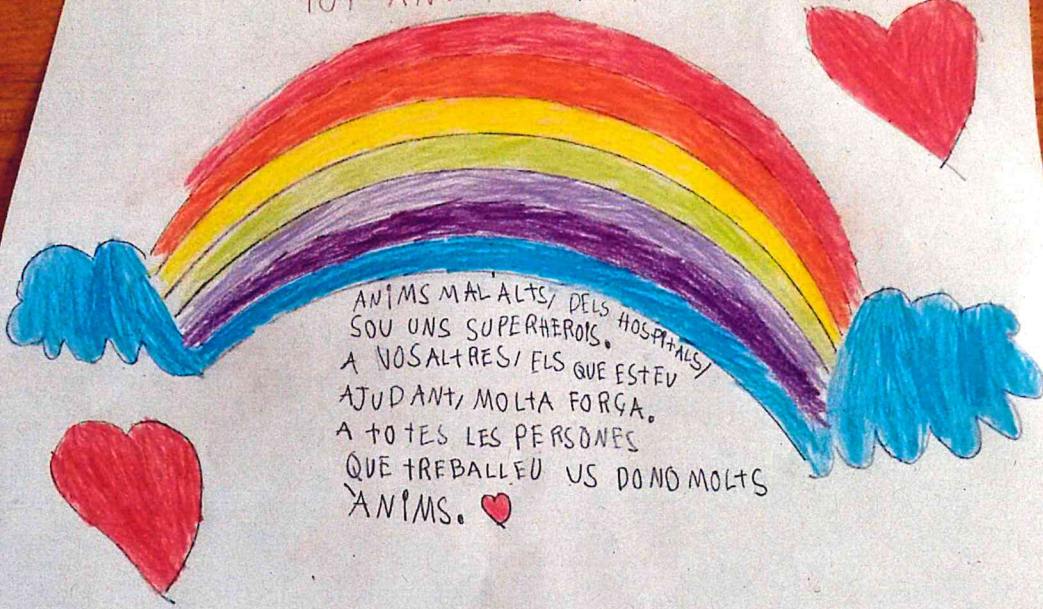 ANIMS MALALTS, DELS HOSPITALS,
SOU UNS SUPERHEROIS.
A VOSALTRES, ELS QUE ESTEU
AJUDANT, MOLTA FORÇA.
A TOTES LES PERSONES
QUE TREBALLEU US DONO MOLTS
ÀNIMS.